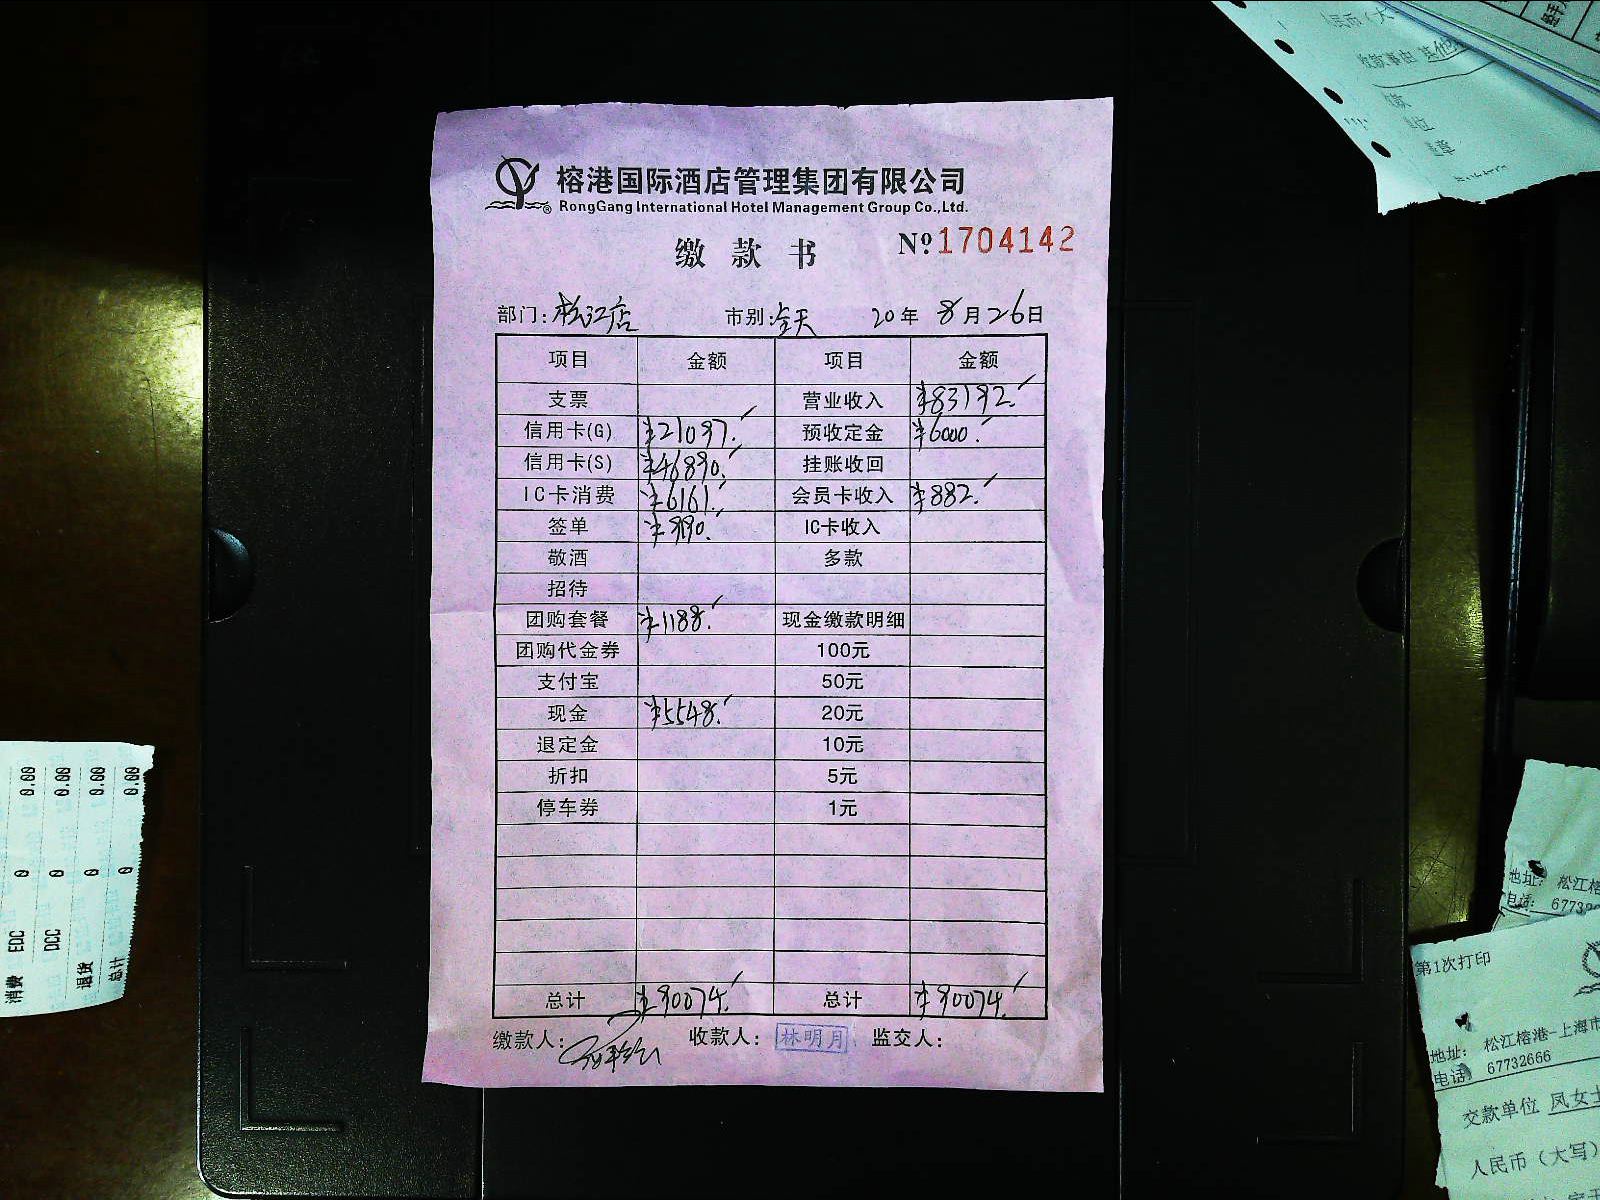 榕港国际酒店管理集团有限公司
RongGang International Hotel Management Group Co.,Ltd.
缴款书 Nº 1704142
部门:松江店 市别:全天 20年 8月26日
项目 金额 项目 金额
支票 营业收入 ¥83192.
信用卡(G) ¥21097. 预收定金 ¥6000.
信用卡(S) ¥46890. 挂账收回
IC卡消费 ¥6161. 会员卡收入 ¥882.
签单 ¥9190. IC卡收入
敬酒 多款
招待
团购套餐 ¥1188. 现金缴款明细
团购代金券 100元
支付宝 50元
现金 ¥5548. 20元
退定金 10元
折扣 5元
停车券 1元
总计 ¥90074. 总计 ¥90074.
缴款人: 收款人: 林明月 监交人:
消费 EDC 0 0.00
DCC 0 0.00
退货 0 0.00
总计 0 0.00
收款事由
地址: 松江榕
电话: 67732
第1次打印
地址: 松江榕港-上海市
电话: 67732666
交款单位 凤女士
人民币(大写)